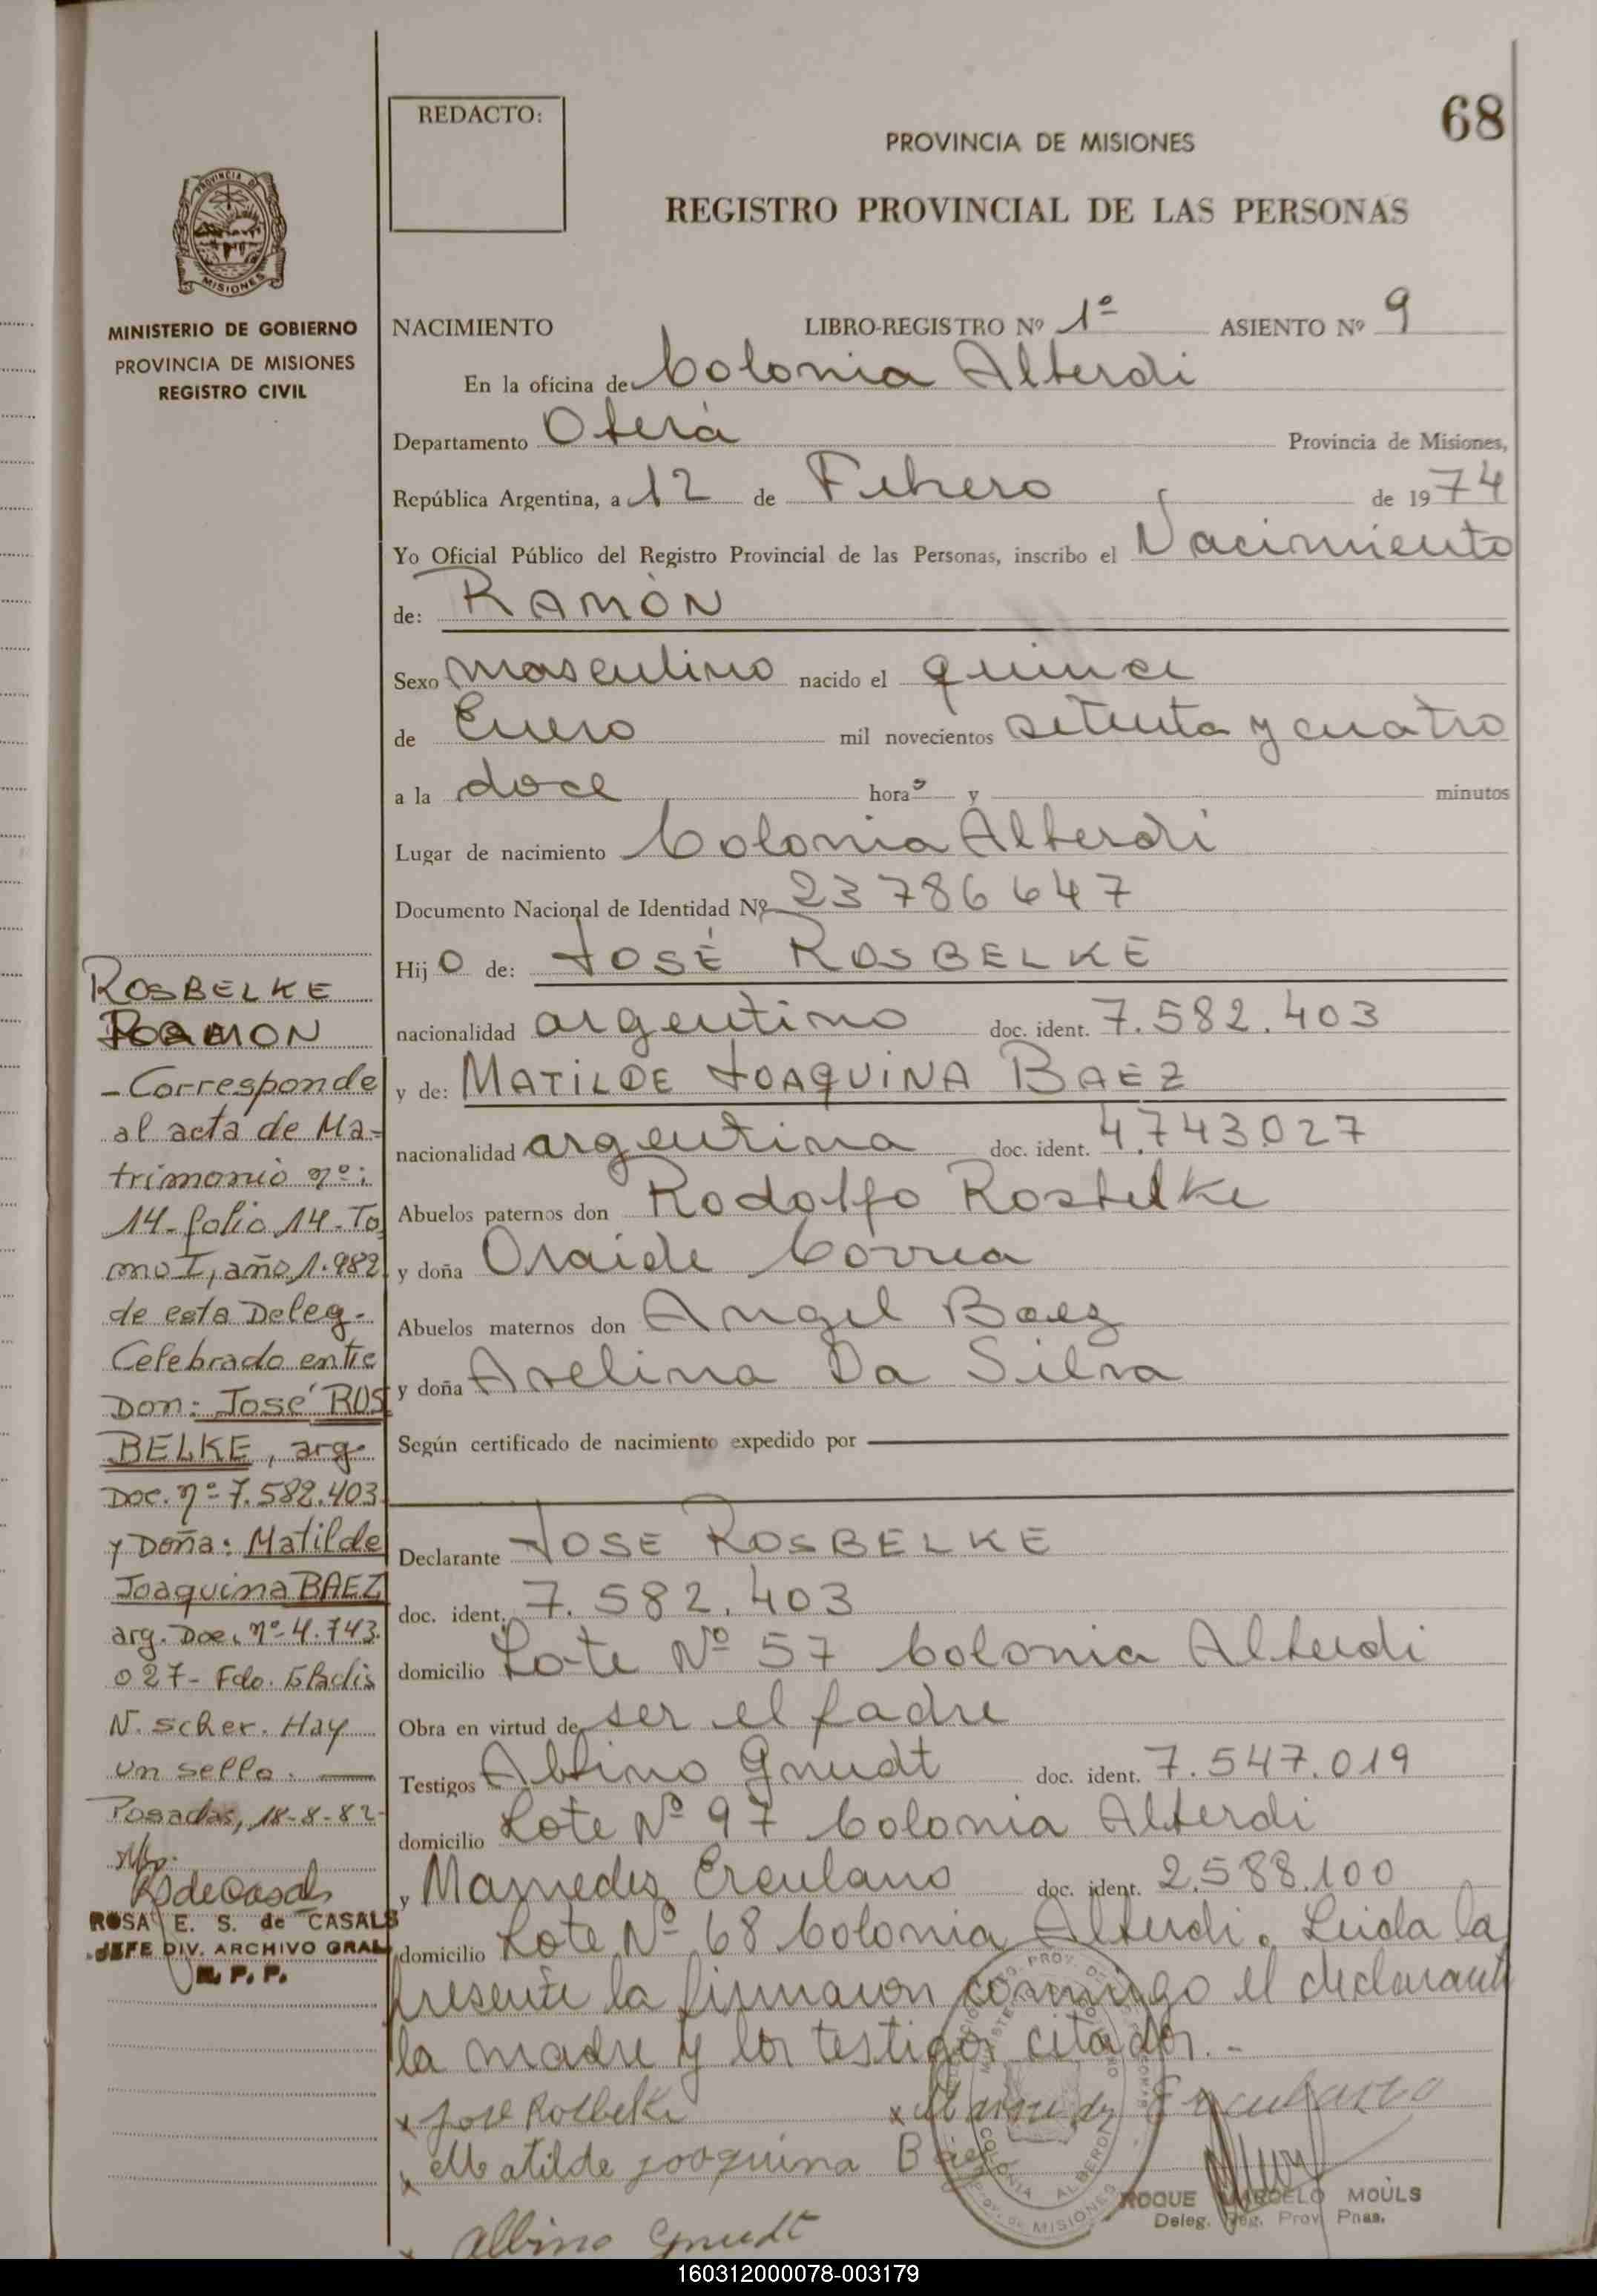 68
REDACTO:
PROVINCIA DE MISIONES
REGISTRO PROVINCIAL DE LAS PERSONAS
PROVINCIA DE
MISIONES
MINISTERIO DE GOBIERNO
PROVINCIA DE MISIONES
REGISTRO CIVIL
NACIMIENTO LIBRO-REGISTRO Nº 1º ASIENTO Nº 9
En la oficina de Colonia Alberdi
Departamento Oberá Provincia de Misiones,
República Argentina, a 12 de Febrero de 1974
Yo Oficial Público del Registro Provincial de las Personas, inscribo el Nacimiento
de: RAMÓN
Sexo masculino nacido el quince
de Enero mil novecientos setenta y cuatro
a la doce horas y minutos
Lugar de nacimiento Colonia Alberdi
Documento Nacional de Identidad Nº 23786647
Hijo de: JOSÉ ROSBELKE
nacionalidad argentino doc. ident. 7.582.403
y de: MATILDE JOAQUINA BAEZ
nacionalidad argentina doc. ident. 4.743.027
Abuelos paternos don Rodolfo Rosbelke
y doña Oraide Correa
Abuelos maternos don Angel Baez
y doña Avelina Da Silva
Según certificado de nacimiento expedido por
Declarante JOSE ROSBELKE
doc. ident. 7.582.403
domicilio Lote Nº 57 Colonia Alberdi
Obra en virtud de ser el padre
Testigos Albino Gnudt doc. ident. 7.547.019
domicilio Lote Nº 97 Colonia Alberdi
y Mamedez Erculano doc. ident. 2.588.100
domicilio Lote Nº 68 Colonia Alberdi. Leida la
presente la firmaron conmigo el declarante
la madre y los testigos citados.-
x Jose Rosbelke x Mamedez Erculano
x Matilde joaquina Báez
x Albino Gnudt
ROQUE MARCELO MOULS
Deleg. Reg. Prov. Pnas.
COLONIA ALBERDI
MISIONES
ROSBELKE
RAMON
- Corresponde
al acta de Ma-
trimonio nº:
14-folio 14-To
mo I, año 1.982
de esta Deleg.
Celebrado entre
Don: José ROS
BELKE, arg.
Doc. nº 7.582.403
y Doña: Matilde
Joaquina BAEZ
arg. Doc. nº 4.743.
027- Fdo. Gladis
N. Scher. Hay
un sello.
Posadas, 18-8-82
RSdeCasals
ROSA E. S. de CASALS
JEFE DIV. ARCHIVO GRAL
R. P. P.
160312000078-003179